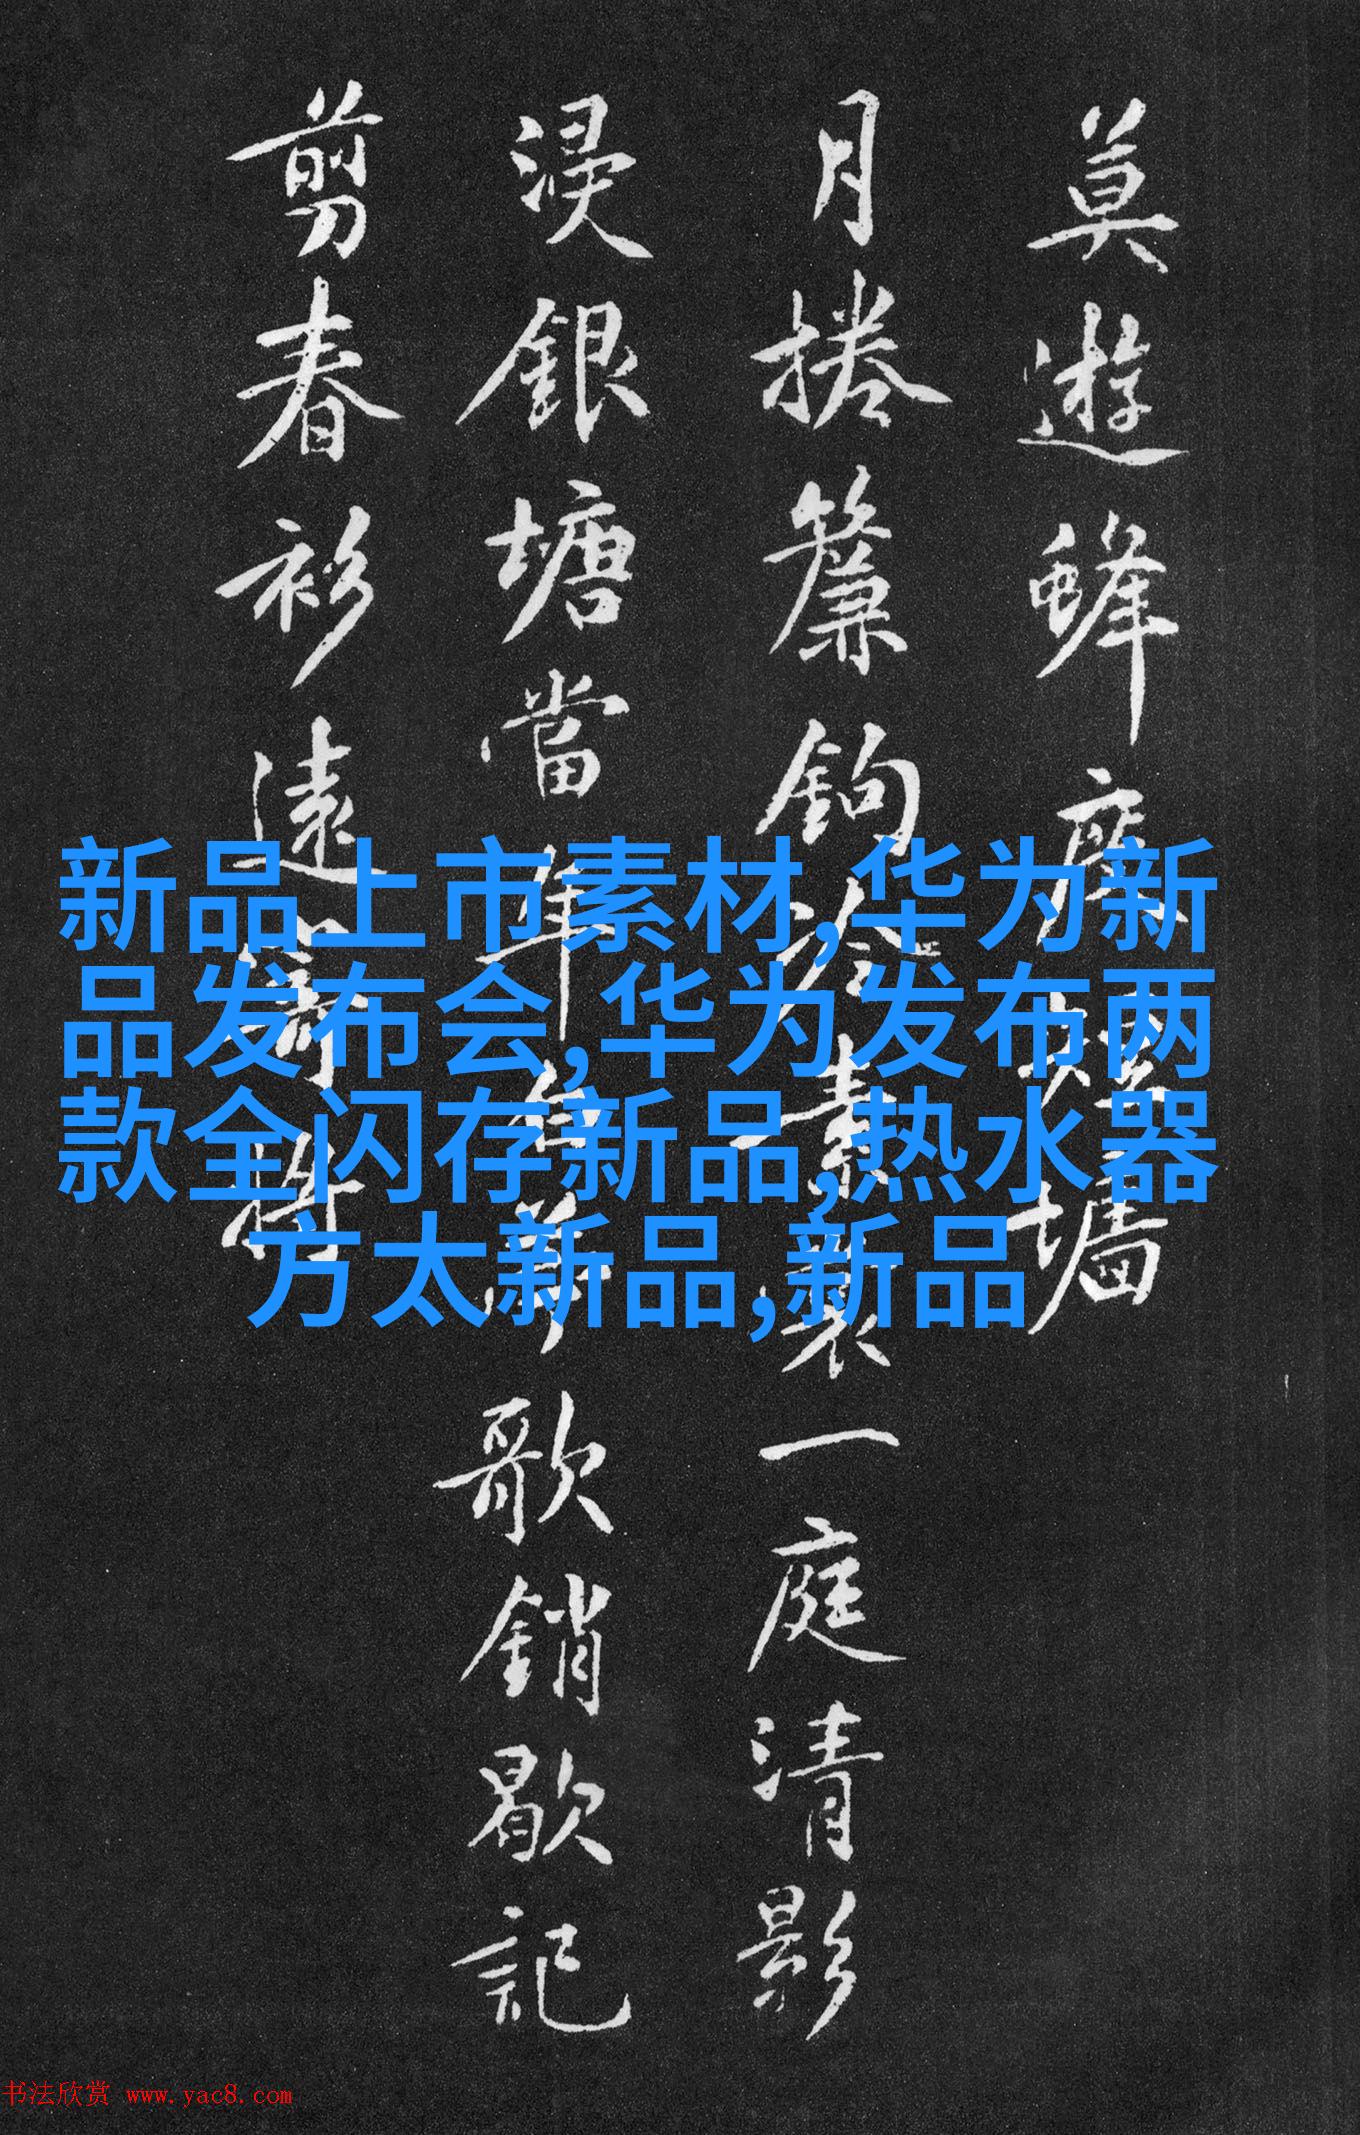 莫遊蜂度墻
月捲簾鉤冷素一庭清影
浸銀塘當年白苧歌銷歇記
剪春衫遠寄將
新品上市素材,华为新
品发布会,华为发布两
款全闪存新品,热水器
方太新品,新品
书法欣赏 www.yac8.com